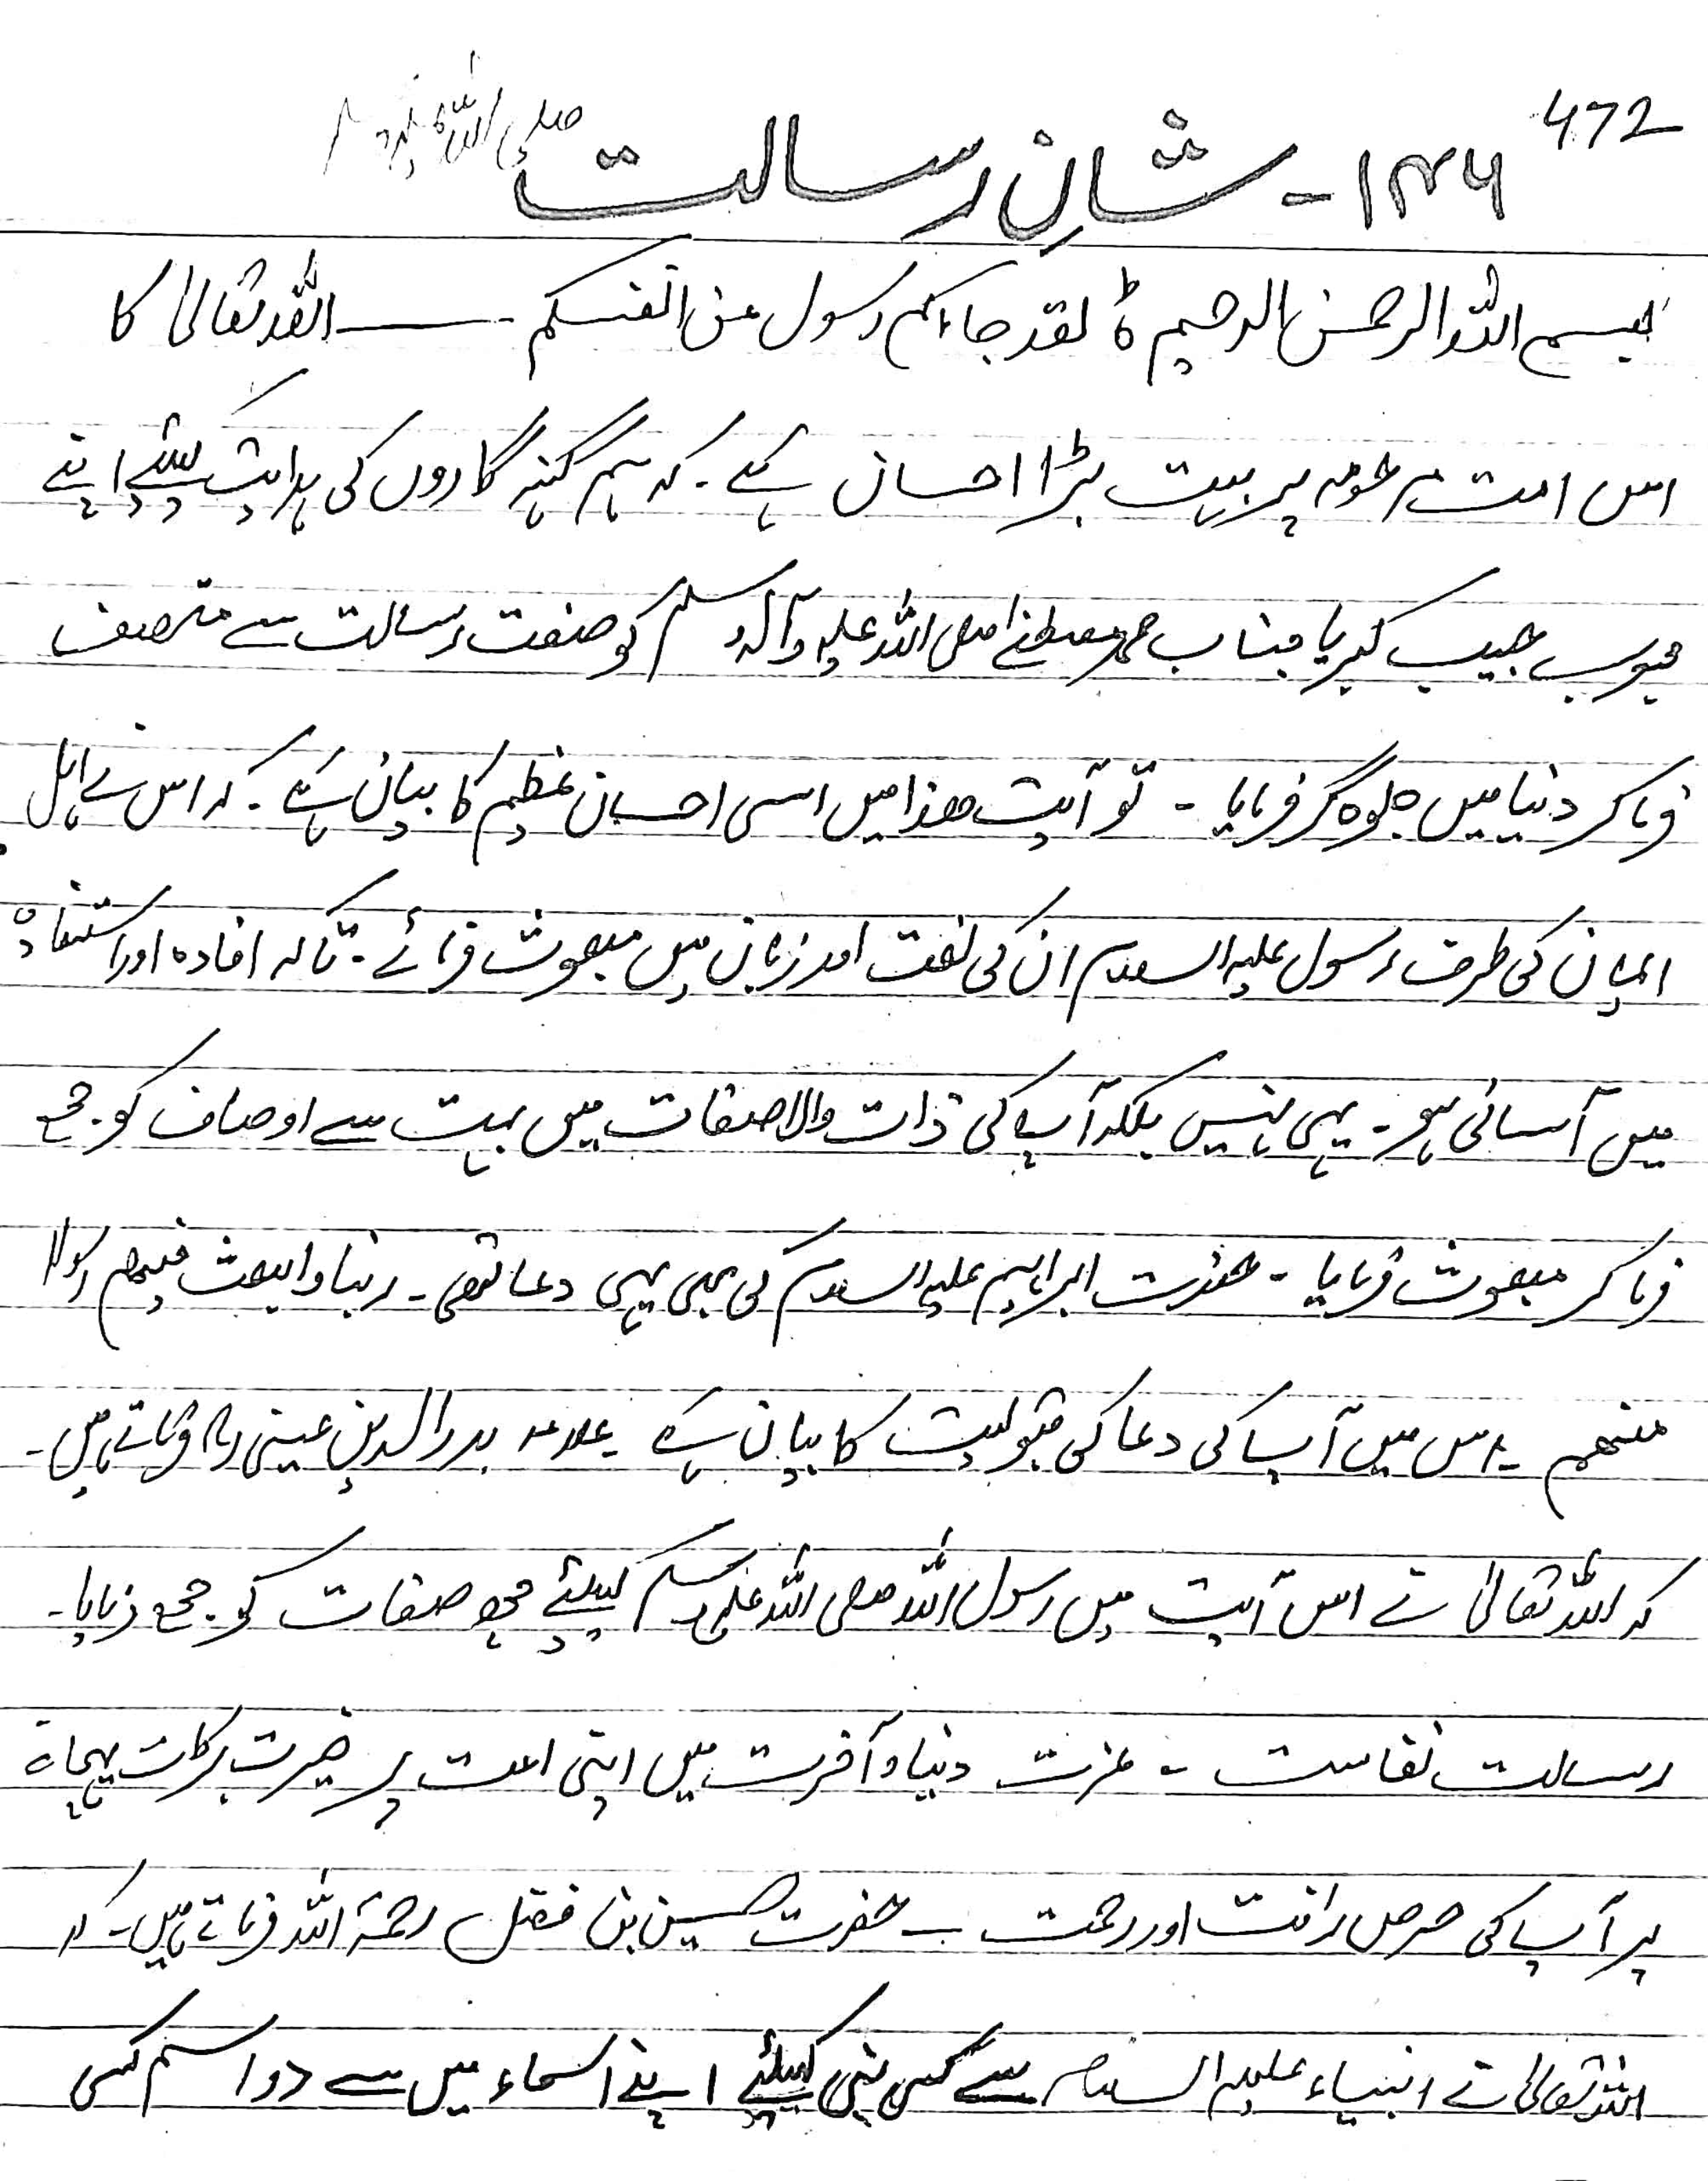 472
۱۴۶ - شانِ رسالت صلی اللہ علیہ وسلم
بسم اللہ الرحمن الرحیم ہ لقد جاءکم رسول من انفسکم ۔ اللہ تعالیٰ کا
اس امت مرحومہ پر بہت بڑا احسان ہے ۔ کہ ہم گنہگاروں کی ہدایت کیلئے اپنے
محبوب حبیب کبریا جناب محمد مصطفےٰ صلی اللہ علیہ وآلہ وسلم کو صفت رسالت سے متصف
فرما کر دنیا میں جلوہ گر فرمایا ۔ تو آیت ھذا میں اسی احسان عظیم کا بیان ہے ۔ کہ اس نے اہل
ایمان کی طرف رسول علیہ السلام ان کی لغت اور زبان میں مبعوث فرمائے ۔ تاکہ افادہ اور استفادہ
میں آسانی ہو ۔ یہی نہیں بلکہ آپ کی ذات والا صفات میں بہت سے اوصاف کو جمع
فرما کر مبعوث فرمایا ۔ حضرت ابراہیم علیہ السلام کی بھی یہی دعا تھی ۔ ربنا وابعث فیھم رسولا
منھم ۔ اس میں آپ کی دعا کی قبولیت کا بیان ہے ۔ علامہ بدر الدین عینی رح فرماتے ہیں ۔
کہ اللہ تعالیٰ نے اس آیت میں رسول اللہ صلی اللہ علیہ وسلم کیلئے چھ صفات کو جمع فرمایا ۔
رسالت نفاست ۔ عزت دنیا و آخرت میں اپنی امت پر خیرت برکات پہچانے
پر آپ کی حرص رافت اور رحمت ۔ حضرت حسین بن فضل رحمۃ اللہ فرماتے ہیں ۔ کہ
اللہ تعالیٰ نے انبیاء علیہم السلام سے کسی نبی کیلئے اپنے اسماء میں سے دو اسم کسی